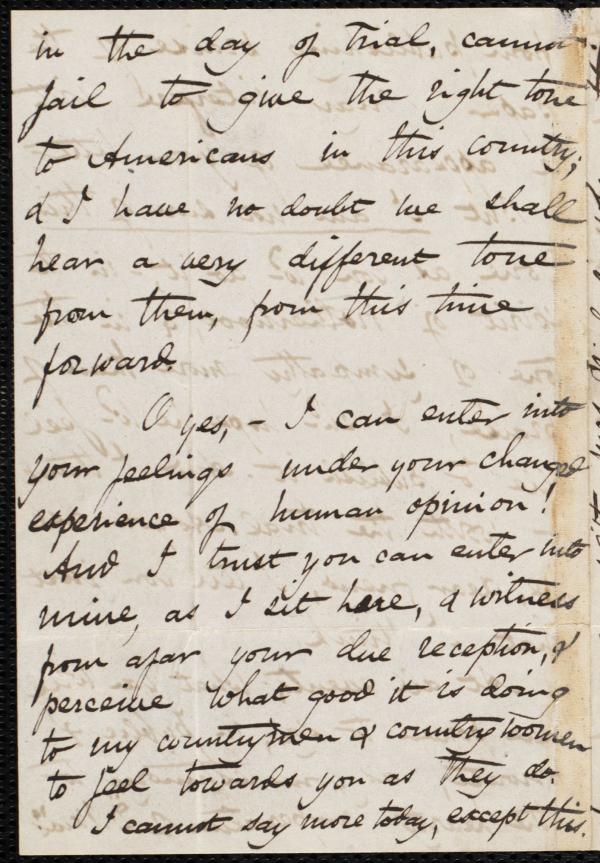 in the day of trial, cannot
fail to give the right tone
to Americans in this country;
& I have no doubt we shall
hear a very different tone
from them, from this time
forward.
O yes, – I can enter into
your feelings under your changed
experience of human opinion!
And I trust you can enter into
mine, as I sit here, & witness
from afar your due reception, &
perceive what good it is doing
to my countrymen & countrywomen
to feel towards you as they do.
I cannot say more today, except this.